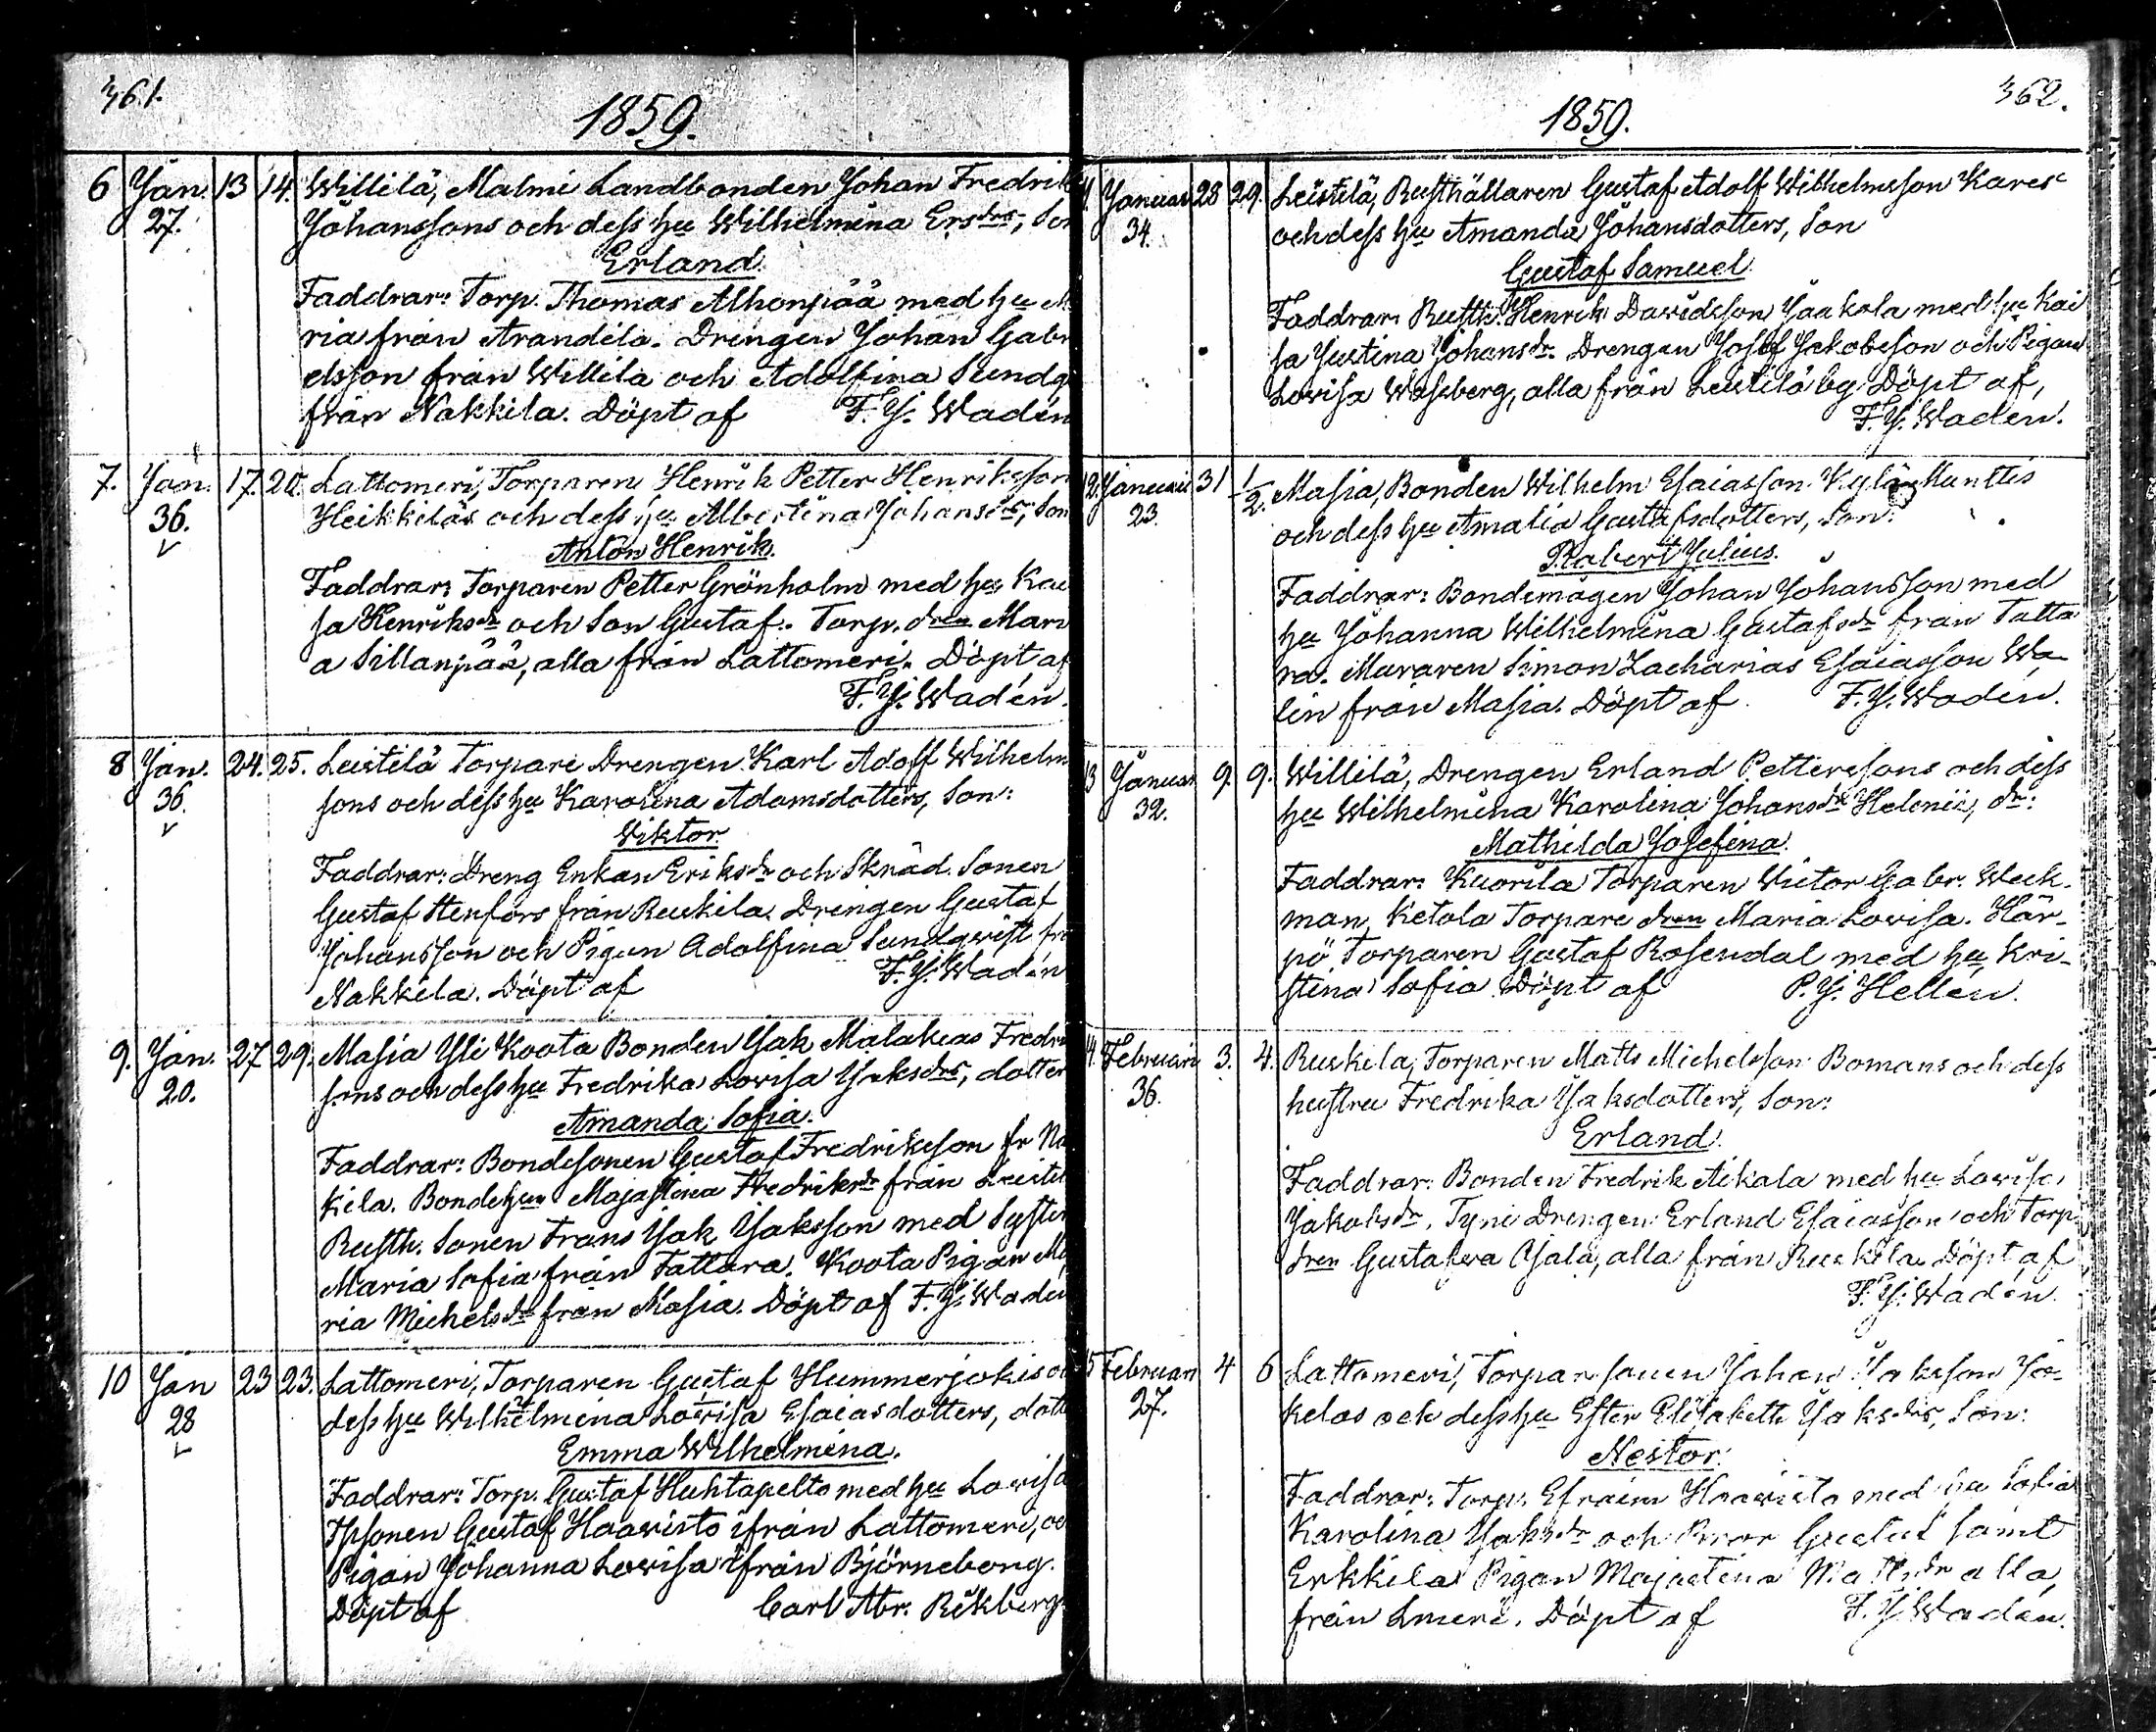 361.
1859.
6 Jan. 13 14. Willilä, Malmi Landbonden Johan Fredrik
27. Johanssons och dess hu Wilhelmina Ersdrs, Son
Erland.
Faddrar: Torp. Thomas Alhonpää med hu
ria från Arandila. Drengen Johan Gabr
elsson från Willila och Adolfina Sundq
från Nakkila. Döpt af F. J. Wadén
7. Jan. 17. 20. Lattomeri, Torparen Henrik Petter Henriksson
36. Heikkilas och dess hu Albertina Johansdrs, Son
Anton Henrik.
Faddrar: Torparen Petter Grönholm med hu Kai
sa Henriksdr och Son Gustaf. Torp. dren Mari
a Sillanpää, alla från Lattomeri. Döpt af
F. J. Wadén.
8 Jan. 24. 25. Leistilä Torpare Drengen Karl Adolf Wilhelm
36. sons och dess hu Karolina Adamsdotters, Son:
Wiktor.
Faddrar: Dreng Enkan Eriksdr och Skräd. Sonen
Gustaf Stenfors från Ruskila. Drengen Gustaf
Johansson och Pigan Adolfina Sundqvist frå
Nakkila. Döpt af F. J. Wadén
9. Jan. 27 29. Masia Yli Koota Bonden Isak Malakias Fredri
20. sons och dess hu Fredrika Lovisa Isaksdrs, dotter
Amanda Sofia.
Faddrar: Bondesonen Gustaf Fredriksson fr Na
kila. Bondehun Majastina Fredriksdr från Leistil
Rusth. Sonen Frans Isak Isaksson med Syster
Maria Sofia från Tattara. Koota Pigan Ma
ria Michelsdr från Masia. Döpt af F. J. Wadén
10 Jan 23 23. Lattomeri, Torparen Gustaf Hummerjokis oc
28 dess hu Wilhelmina Lovisa Esaiasdotters, dott
Emma Wilhelmina.
Faddrar: Torp. Gustaf Huhtapelto med hu Lovisa
Tpsonen Gustaf Haavisto ifrån Lattomeri, oc
Pigan Johanna Lovisa ifrån Björneborg.
Döpt af Carl Abr. Rikberg
362.
1859.
11. Januari 28 29. Leistilä, Rusthållaren Gustaf Adolf Wilhelmsson Kares
34. och dess hu Amanda Johansdotters, Son
Gustaf Samuel.
Faddrar: Rusth. Henrik Davidsson Jaakola med hu Kai
sa Justina Johansdr. Drengen Josef Jakobsson och Pigan
Lovisa Wessberg, alla från Leistilä by. Döpt af,
F. J. Wadén.
12. Januari 31 1/2. Masia, Bonden Wilhelm Esaiasson Kylä Munttis
23. och dess hu Amalia Gustafsdotters, Son:
Robert Julius.
Faddrar: Bondemågen Johan Johansson med
hu Johanna Wilhelmina Gustafsdr från Tatta
ra. Muraren Simon Zacharias Esaiasson Wa
lin från Masia. Döpt af F. J. Wadén.
13 Januari 9. 9. Willilä, Drengen Erland Petterssons och dess
32. hu Wilhelmina Karolina Johansdr Helenii, dr:
Mathilda Josefina.
Faddrar: Kuorila Torparen Victor Gabr. Weck-
man, Ketola Torpare dren Maria Lovisa. Här-
pö Torparen Gustaf Rosendal med hu Kri-
stina Sofia. Döpt af P. J. Hellen.
14. Februari 3. 4. Ruskila, Torparen Matts Michelsson Bomans och dess
36. hustru Fredrika Isaksdotters, Son:
Erland.
Faddrar: Bonden Fredrik Aikala med hu Lovisa
Jakobsdr. Tyni Drengen Erland Esaiasson och Torp.
dren Gustafva Ojala, alla från Ruskila. Döpt af
F. J. Wadén.
15 Februari 4 6 Lattomeri, Torpar sonen Johan Isaksson
27. kelas och dess hu Ester Elisabeth Isaksdrs, Son:
Nestor.
Faddrar: Torp. Efraim Haavisto med hu Sofia
Karolina Isaksdr och Bror Gustaf samt
Erkkila Pigan Majastina Mattsdr alla,
från Lmeri. Döpt af F. J. Wadén.